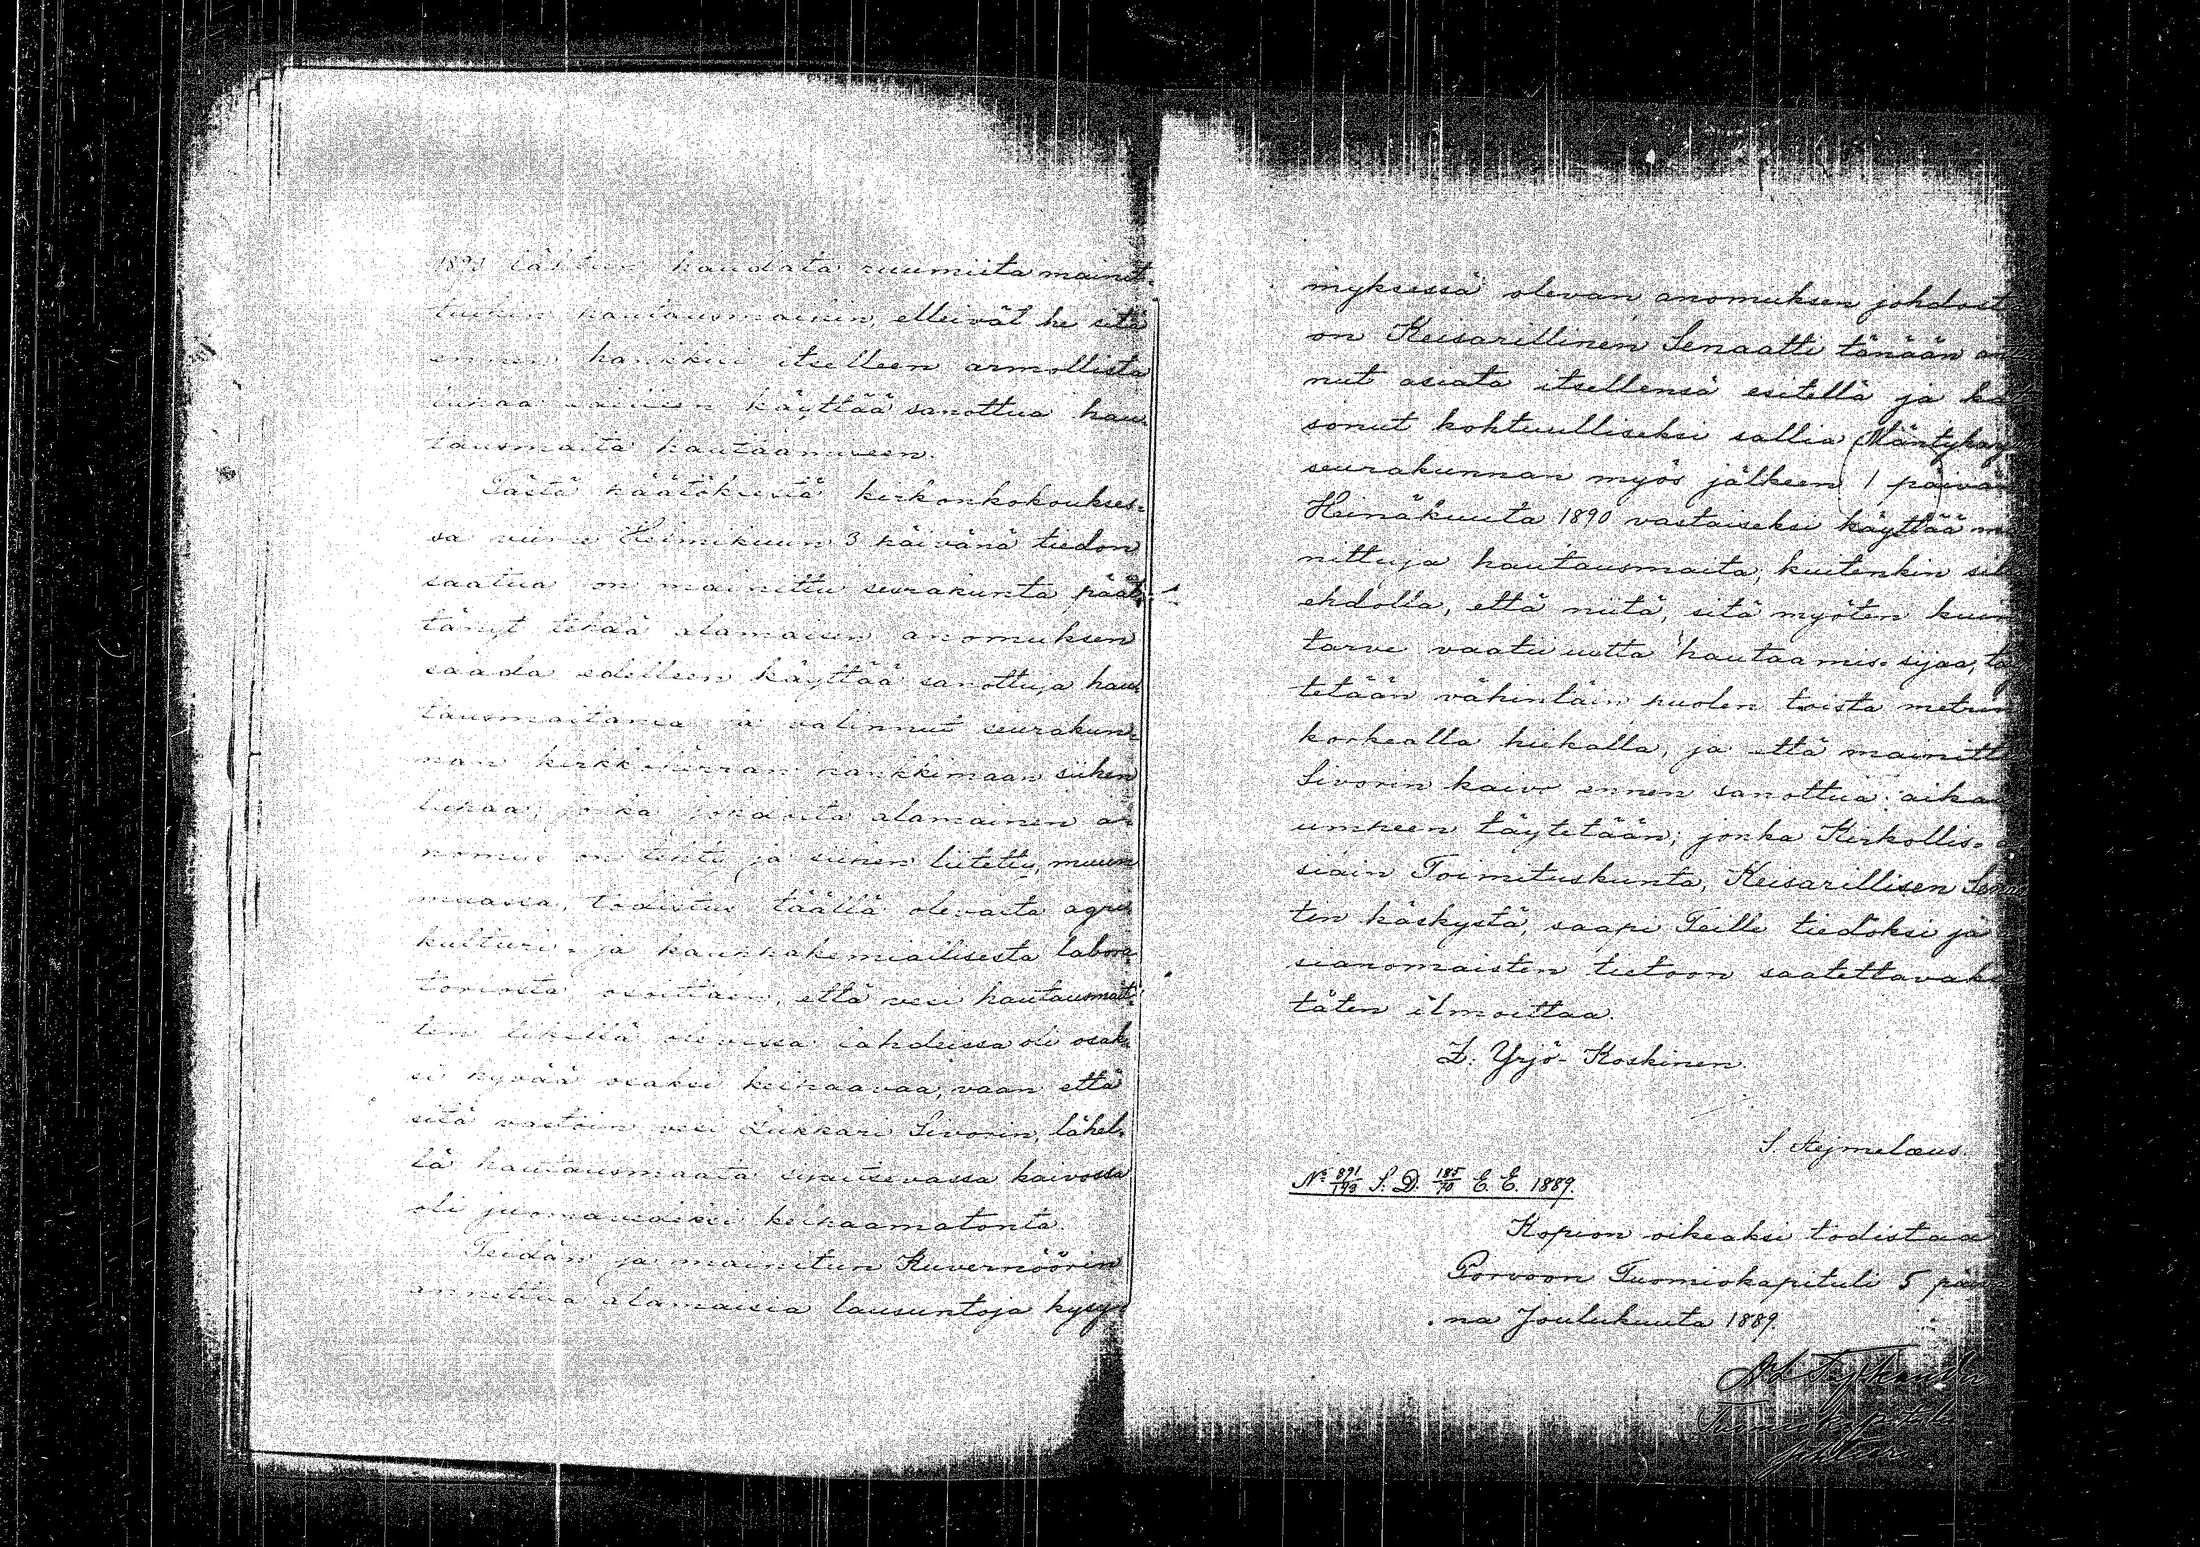 1890 lähtien haudata ruumiita mainit-
tuihin hautausmaihin, elleivät he sitä
ennen hankkisi itselleen armollista
lupaa saisiko käyttää sanottua hau-
tausmaita hautaamiseen.
Tästä päätöksestä kirkonkokoukses-
sa viime Helmikuun 3 päivänä tiedon
saatua on mainittu seurakunta päät-
tänyt tehdä alamaisen anomuksen
saada edelleen käyttää sanottuja hau-
tausmaitansa ja valinnut seurakun-
nan kirkkoherran hankkimaan siihen
lupaa; jonka johdosta alamainen a-
nomus on tehty ja siihen liitetty, muun
muassa, todistus täällä olevasta agri-
kulturi- ja kauppakemiallisesta labora-
toriosta, osoittaen, että vesi hautausmait-
ten likellä olevissa lähdeissä oli osak-
si hyvää osaksi kelpaavaa, vaan että
sitä vastoin vesi Lukkari Sivorin, lähel-
lä hautausmaata sijaitsevassa kaivossa
oli juomavedeksi kelpaamatonta.
Teidän ja mainitun Kuvernöörin
annettua alamaisia lausuntoja kysy-
myksessä olevan anomuksen johdosta
on Keisarillinen Senaatti tänään anta
nut asiata itsellensä esitellä ja kat
sonut kohtuulliseksi sallia Mäntyharju
seurakunnan myös jälkeen 1 päivän
Heinäkuuta 1890 vastaiseksi käyttää mai
nittuja hautausmaita, kuitenkin sillä
ehdolla, että niitä, sitä myöten kuin
tarve vaatii uutta hautaamis-sijaa, täy
tetään vähintäin puolen toista metrin
korkealla hiekalla, ja että mainittu
Sivorin kaivo ennen sanottua aikaa
umpeen täytetään; jonka Kirkollis-a
siain Toimituskunta, Keisarillisen Senaa
tin käskystä, saapi Teille tiedoksi ja a
sianomaisten tietoon saatettavaksi
täten ilmoittaa.
Z. Yrjö-Koskinen.
S. Hejmelæus.
No 891/193 S. D. 185/70 E. E. 1889.
Kopion oikeaksi todistaa
Porvoon Tuomiokapituli 5 päivä
na Joulukuuta 1889.
Tuomiokapitulin